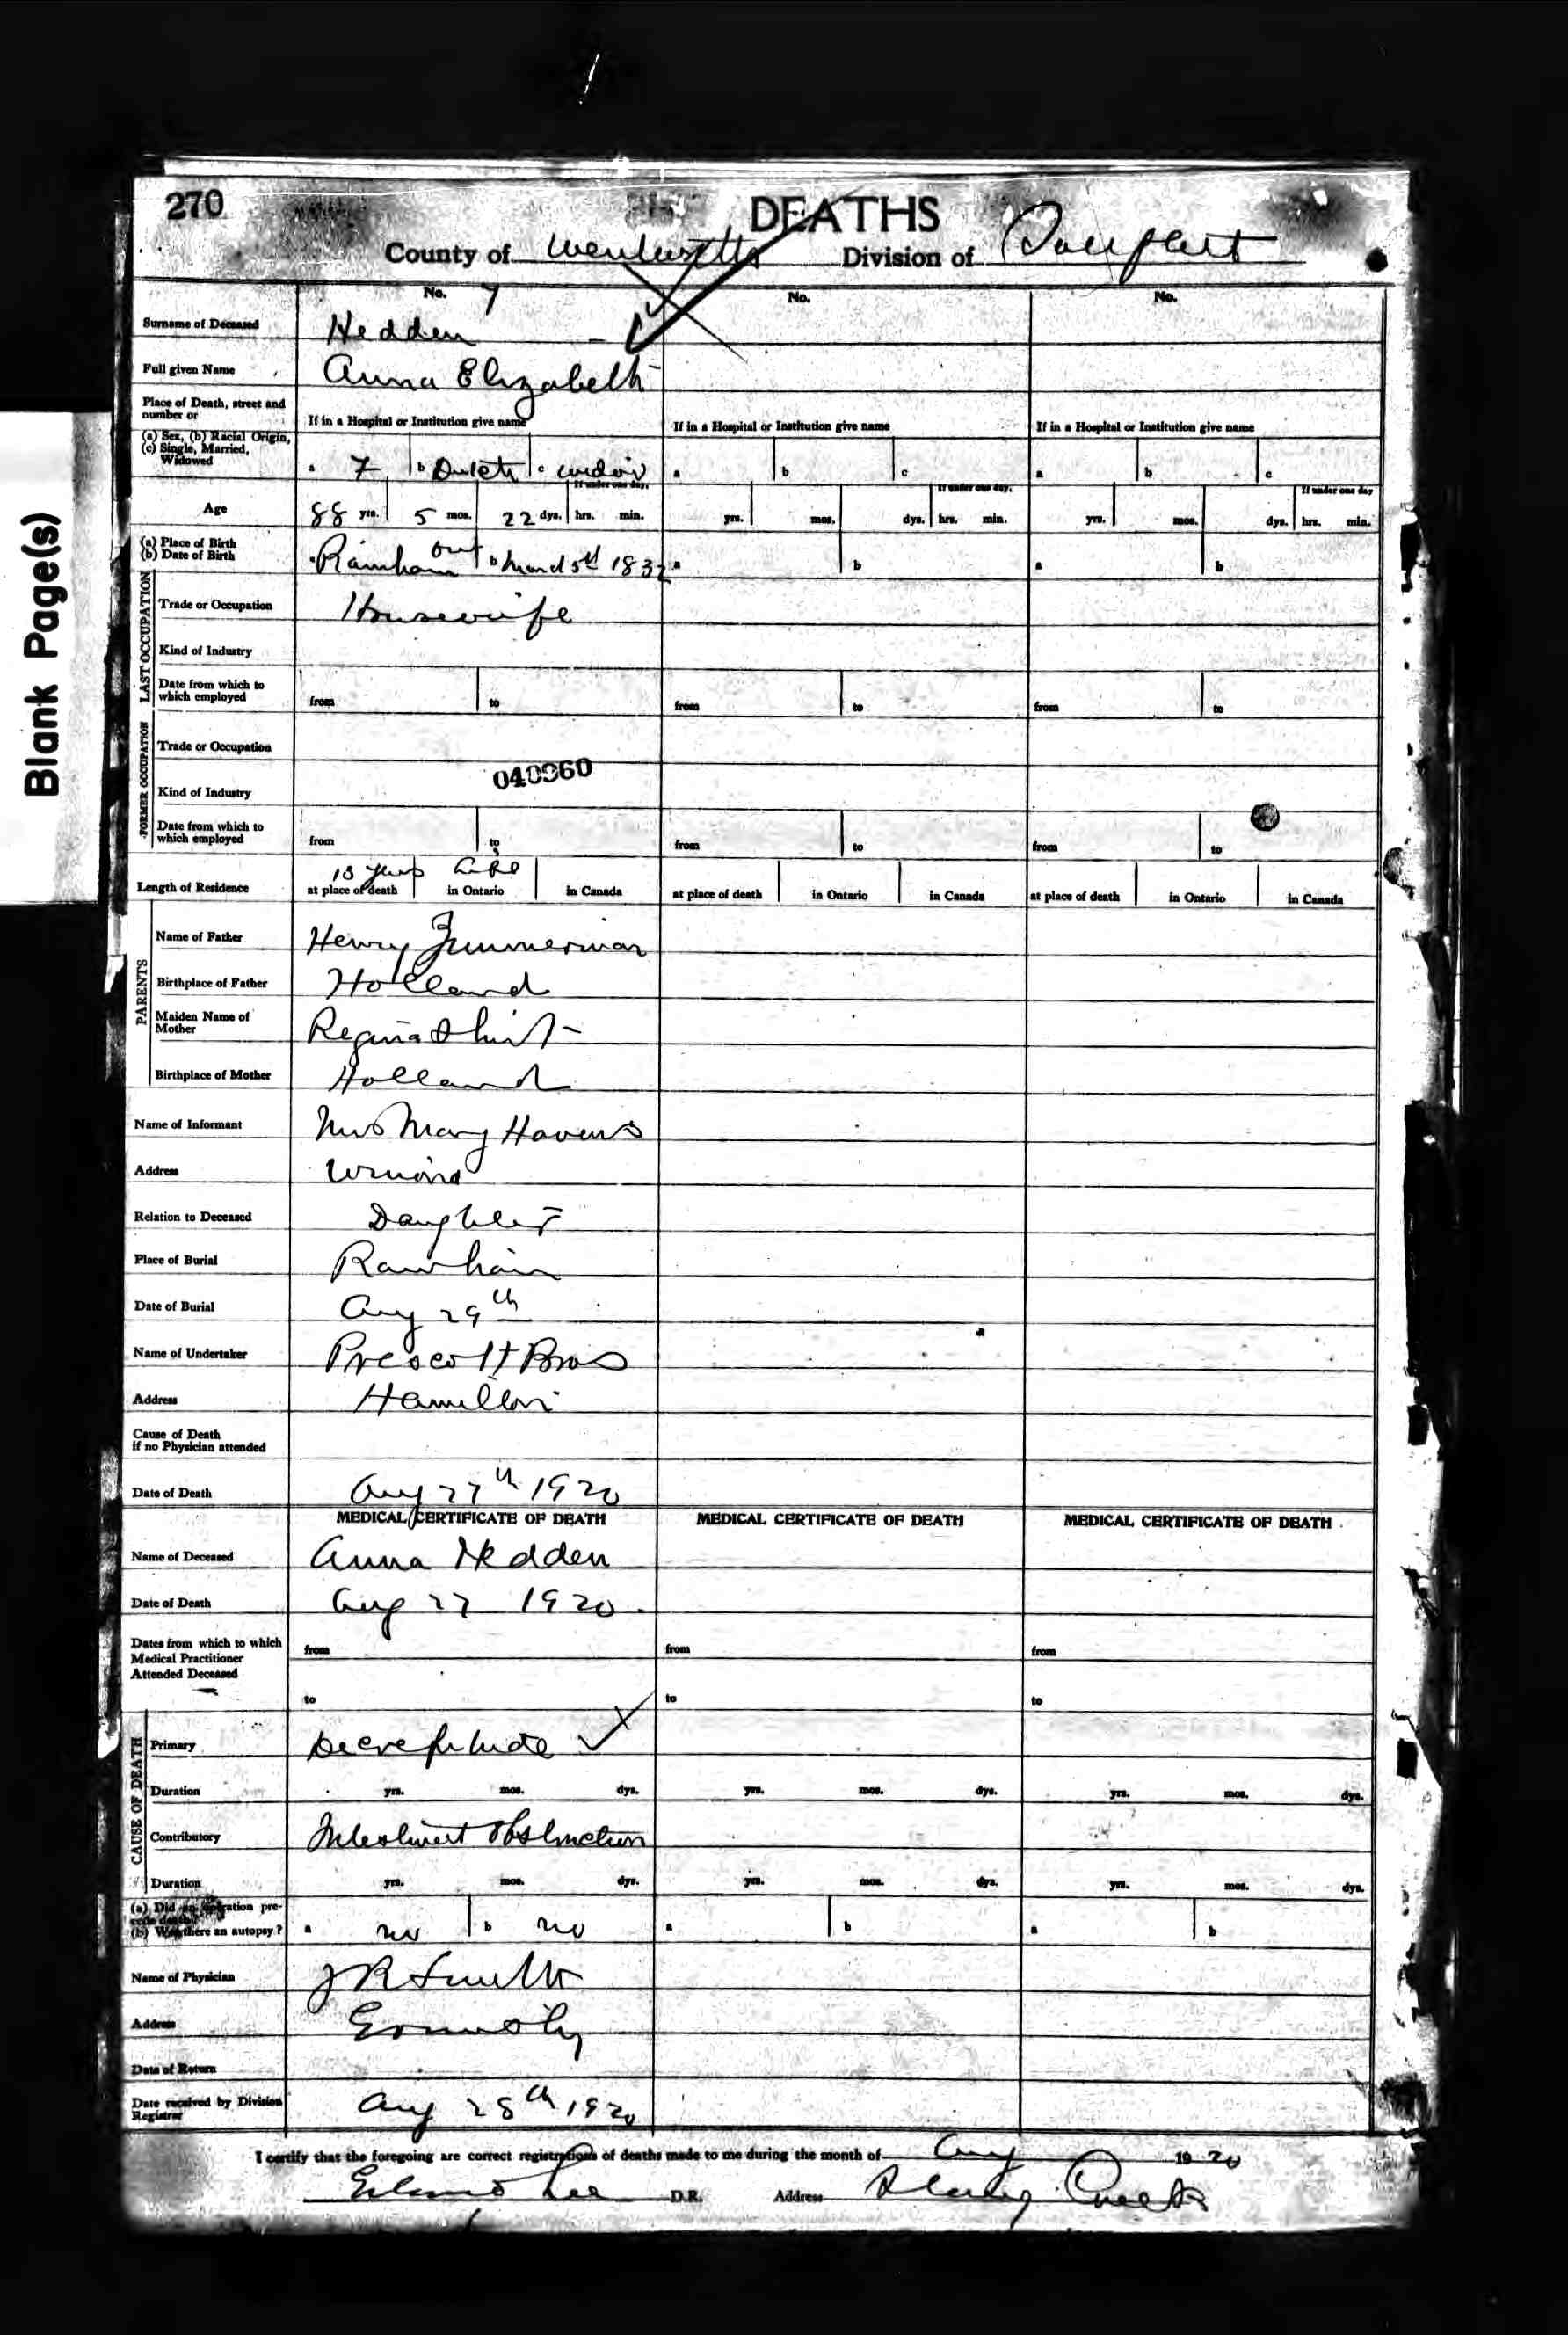 Blank Page(s)
270
DEATHS
County of Wentworth Division of Saltfleet
No. 7 No. No.
Surname of Deceased Hedden
Full given Name Anna Elizabeth
Place of Death, street and number or If in a Hospital or Institution give name If in a Hospital or Institution give name If in a Hospital or Institution give name
(a) Sex, (b) Racial Origin, (c) Single, Married, Widowed a F b Dutch c widow a b c a b c
Age 88 yrs. 5 mos. 22 dys. If under one day, hrs. min. yrs. mos. dys. If under one day, hrs. min. yrs. mos. dys. If under one day hrs. min.
(a) Place of Birth (b) Date of Birth a Rainham Ont b March 5th 1832 a b a b
LAST OCCUPATION
Trade or Occupation Housewife
Kind of Industry
Date from which to which employed from to from to from to
FORMER OCCUPATION
Trade or Occupation
040360
Kind of Industry
Date from which to which employed from to from to from to
Length of Residence 13 years at place of death Life in Ontario in Canada at place of death in Ontario in Canada at place of death in Ontario in Canada
PARENTS
Name of Father Henry Zimmerman
Birthplace of Father Holland
Maiden Name of Mother Regina
Birthplace of Mother Holland
Name of Informant Mrs Mary Havens
Address Winona
Relation to Deceased Daughter
Place of Burial Rainham
Date of Burial Aug 29th
Name of Undertaker Prescott Bros
Address Hamilton
Cause of Death if no Physician attended
Date of Death Aug 27th 1920
MEDICAL CERTIFICATE OF DEATH MEDICAL CERTIFICATE OF DEATH MEDICAL CERTIFICATE OF DEATH
Name of Deceased Anna Hedden
Date of Death Aug 27 1920
Dates from which to which Medical Practitioner Attended Deceased from from from
to to to
CAUSE OF DEATH
Primary Decrepitude
Duration yrs. mos. dys. yrs. mos. dys. yrs. mos. dys.
Contributory Obstruction
Duration yrs. mos. dys. yrs. mos. dys. yrs. mos. dys.
(a) Did an operation precede death? (b) Was there an autopsy? a no b no a b a b
Name of Physician J R Smith
Address Grimsby
Date of Return
Date received by Division Registrar Aug 28th 1920
I certify that the foregoing are correct registrations of deaths made to me during the month of Aug 1920
Lee D.R. Address Stoney Creek